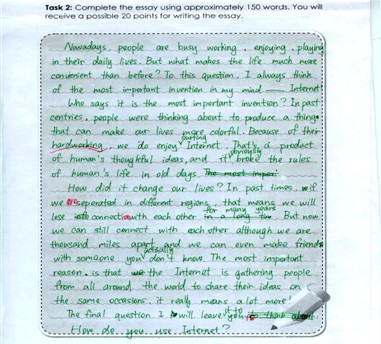 Task 2: Complete the essay using approximately 150 words. You will
receive a possible 20 points for writing the essay.
Nowadays, people are busy working, enjoying, playing
in their daily lives. But what makes the life much more
convenient than before? To this question, I always think
of the most important invention in my mind —— Internet
Who says it is the most important invention? In past
centries, people were thinking about to produce a thing
that can make our lives more colorful. Because of their
hardworking, we do enjoy surfing Internet. That's a product
of human's thoughtful ideas, and it obviously broke the rules
of human's life in old days. The most impor
How did it change our lives? In past times, if
we are seperated in different regions, that means we will
lose connection with each other for many years. But now
we can still connect with each other although we are
thousand miles apart, and we can even make friends
with someone you actually don't know. The most important
reason is that the Internet is gathering people
from all around the world to share their ideas on
the same occasions. it really means a lot more!
The final question I will leave it to you is
How do you use Internet?